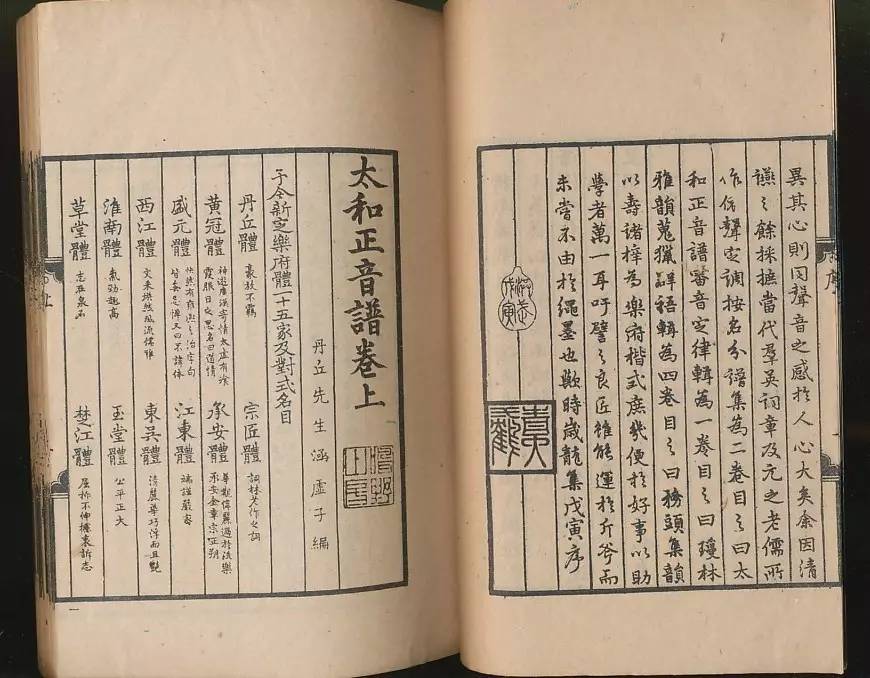 異其心則因聲音之感於人心大矣余因清
讌之餘採摭當代羣英詞章及元之老儒所
作依聲定調按名分譜集為二卷目之曰太
和正音譜審音定律輯為一卷目之曰瓊林
雅韻蒐獵群語輯為四卷目之曰務頭集韻
以壽諸梓為樂府楷式庶幾便於好事以助
學者萬一耳吁譬之良匠雖能運於斤斧而
未嘗不由於繩墨也歟時歲龍集戊寅序
洪武
戊寅
太和正音譜卷上
丹丘先生涵虛子編
予今新定樂府體一十五家及對式名目
丹丘體 豪放不羈
宗匠體 詞林老作之詞
黃冠體 神遊廣漠寄情太虛有餐
霞服日之思名曰道情
承安體 華觀偉麗過於泆樂
承安金章宗正朔
盛元體 快然有雍熙之治字句
皆無忌憚又曰不諱體
江東體 端謹嚴密
西江體 文采煥然風流儒雅
東吳體 清麗華巧浮而且艷
淮南體 氣勁趣高
玉堂體 公平正大
草堂體 志在泉石
楚江體 屈抑不伸攄衷訴志
一